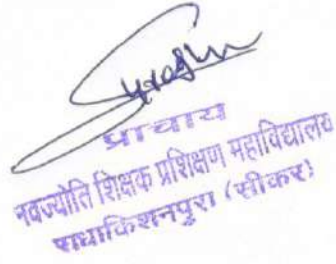 प्राचार्य
नवज्योति शिक्षक प्रशिक्षण महाविद्यालय
राधाकिशनपुरा (सीकर)